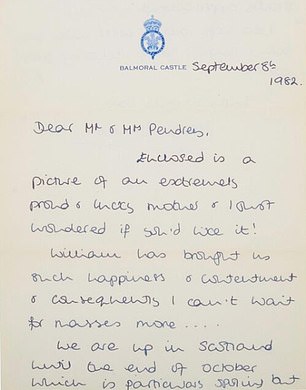 BALMORAL CASTLE September 8th
1982.
Dear Mr & Mrs Pendrey,
Enclosed is a
picture of an extremely
proud & lucky mother & I just
wondered if you'd like it!
William has brought us
such happiness & contentment
& consequently I can't wait
for masses more ....
We are up in Scotland
until the end of October
which is particularly spoiling but